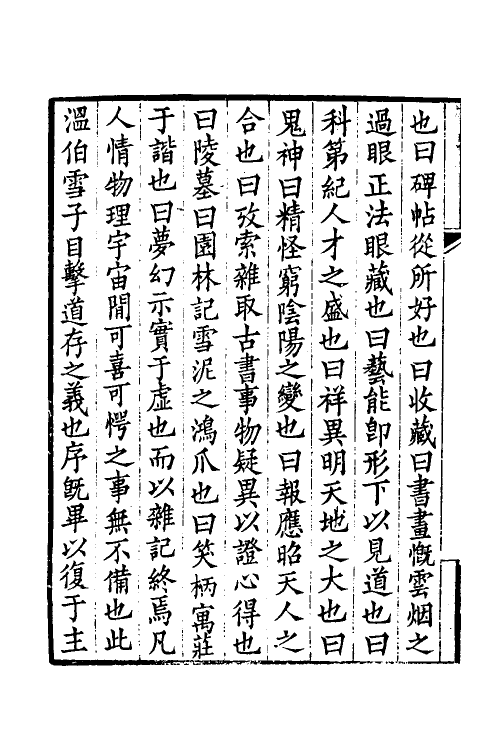 也曰碑帖從所好也曰收藏曰書畫慨雲烟之
過眼正法眼藏也曰藝能卽形下以見道也曰
科第紀人才之盛也曰祥異明天地之大也曰
鬼神曰精怪窮陰陽之變也曰報應昭天人之
合也曰攷索雜取古書事物疑異以證心得也
曰陵墓曰園林記雪泥之鴻爪也曰笑柄寓莊
于諧也曰夢幻示實于虛也而以雜記終焉凡
人情物理宇宙閒可喜可愕之事無不備也此
溫伯雪子目擊道存之義也序旣畢以復于主